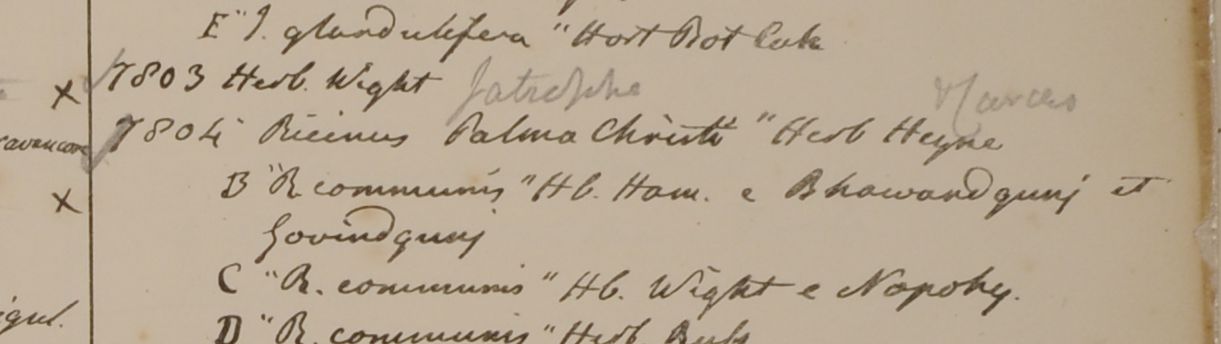 E "J. glandulifera" Hort Bot Calc
7803 Herb. Wight Jatropha
7804 Ricinus Palma Christi" Herb Heyne
B "R communis" Hb. Ham. e Bhawandgunj et
Govindgunj
C "R. communis" Hb. Wight e Napohy.
D "R. communis" Herb.